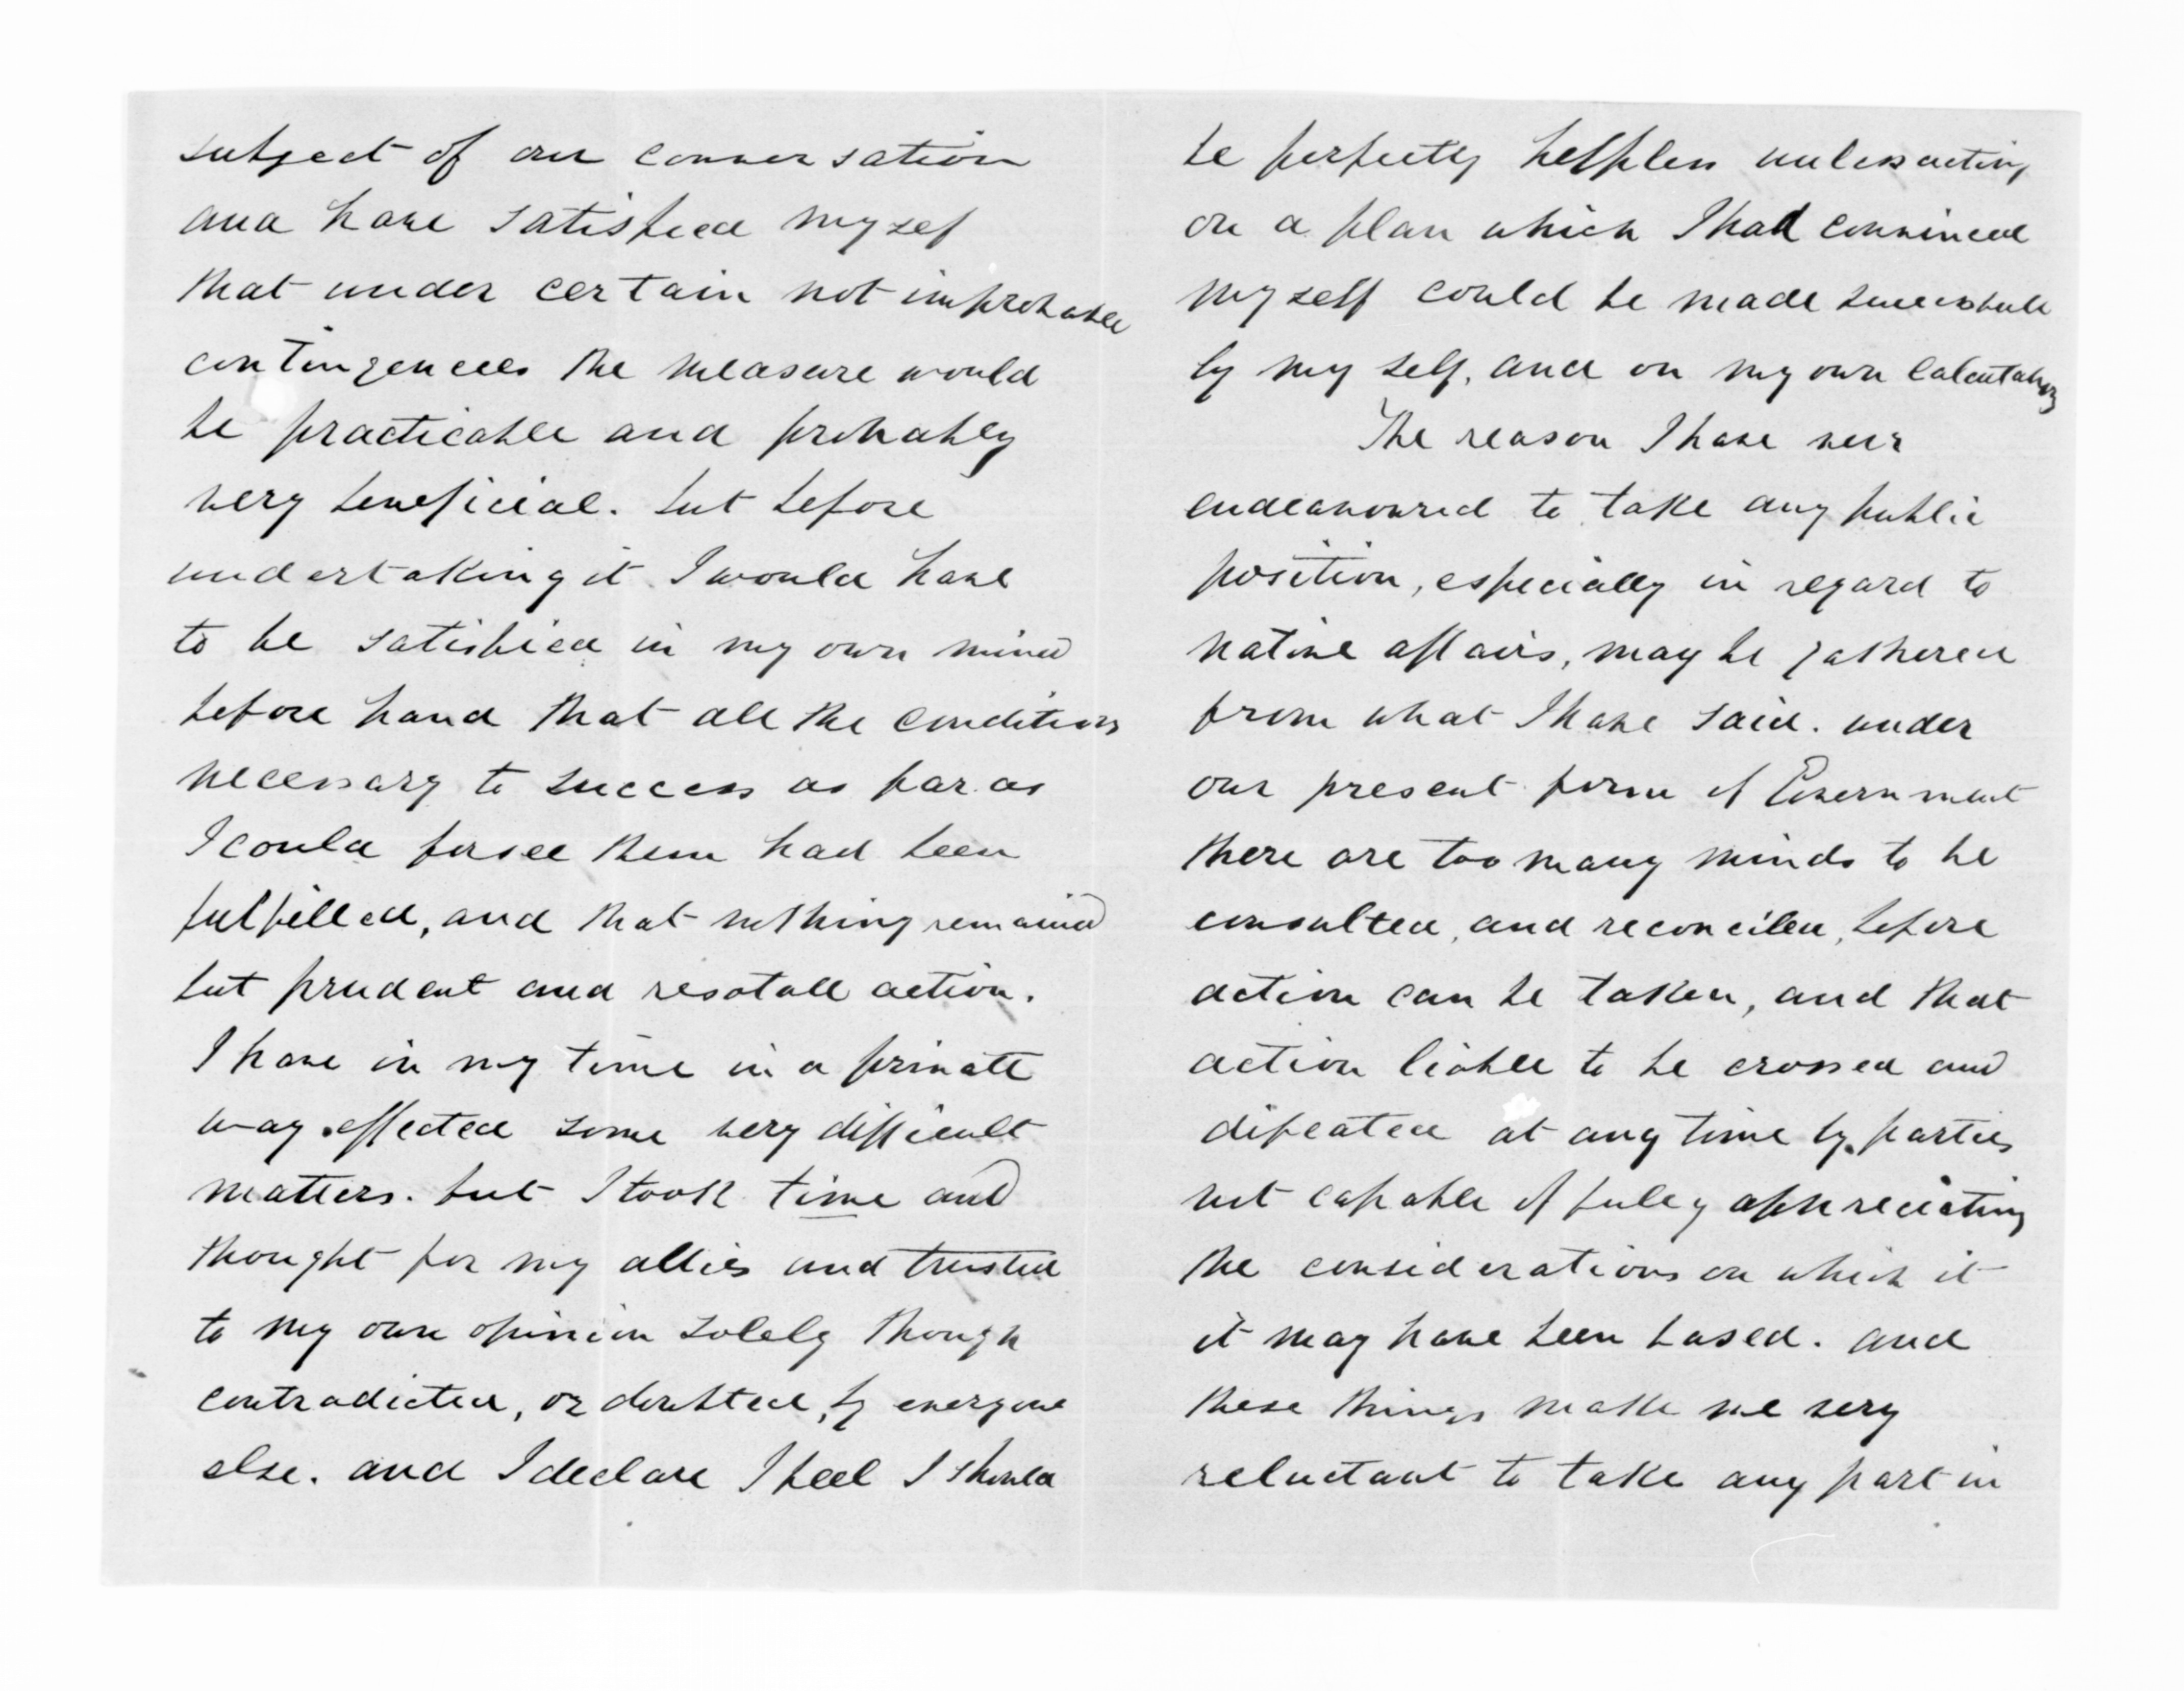 subject of our conversation
and have satisfied mysef
that under certain not improbable
contingencees the measure would
be practicable and probably
very beneficial. but before
undertaking it I would have
to be satisfied in my own mind
before hand that all the conditions
necessary to success as far as
I could forsee them had been
fulfilled, and that nothing remained
but prudent and action.
I have in my time in a private
way effected some very difficult
matters. but I took time and
thought for my allies and trusted
to my own opinion solely though
contradicted, or doubted, by everyone
else. and I declare I feel I should
be perfectly helpless unless acting
on a plan which I had convinced
myself could be made successfull
by my self, and on my own
The reason I have never
endeavoured to take any public
position, especially in regard to
native affairs, may be gathered
from what I have said. under
our present form of Government
there are too many minds to be
consulted, and reconciled, before
action can be taken, and that
action liable to be crossed and
difeated at any time by parties
not capable of fully appreciating
the considerations on which it
it may have been based. and
these things make me very
reluctant to take any part in